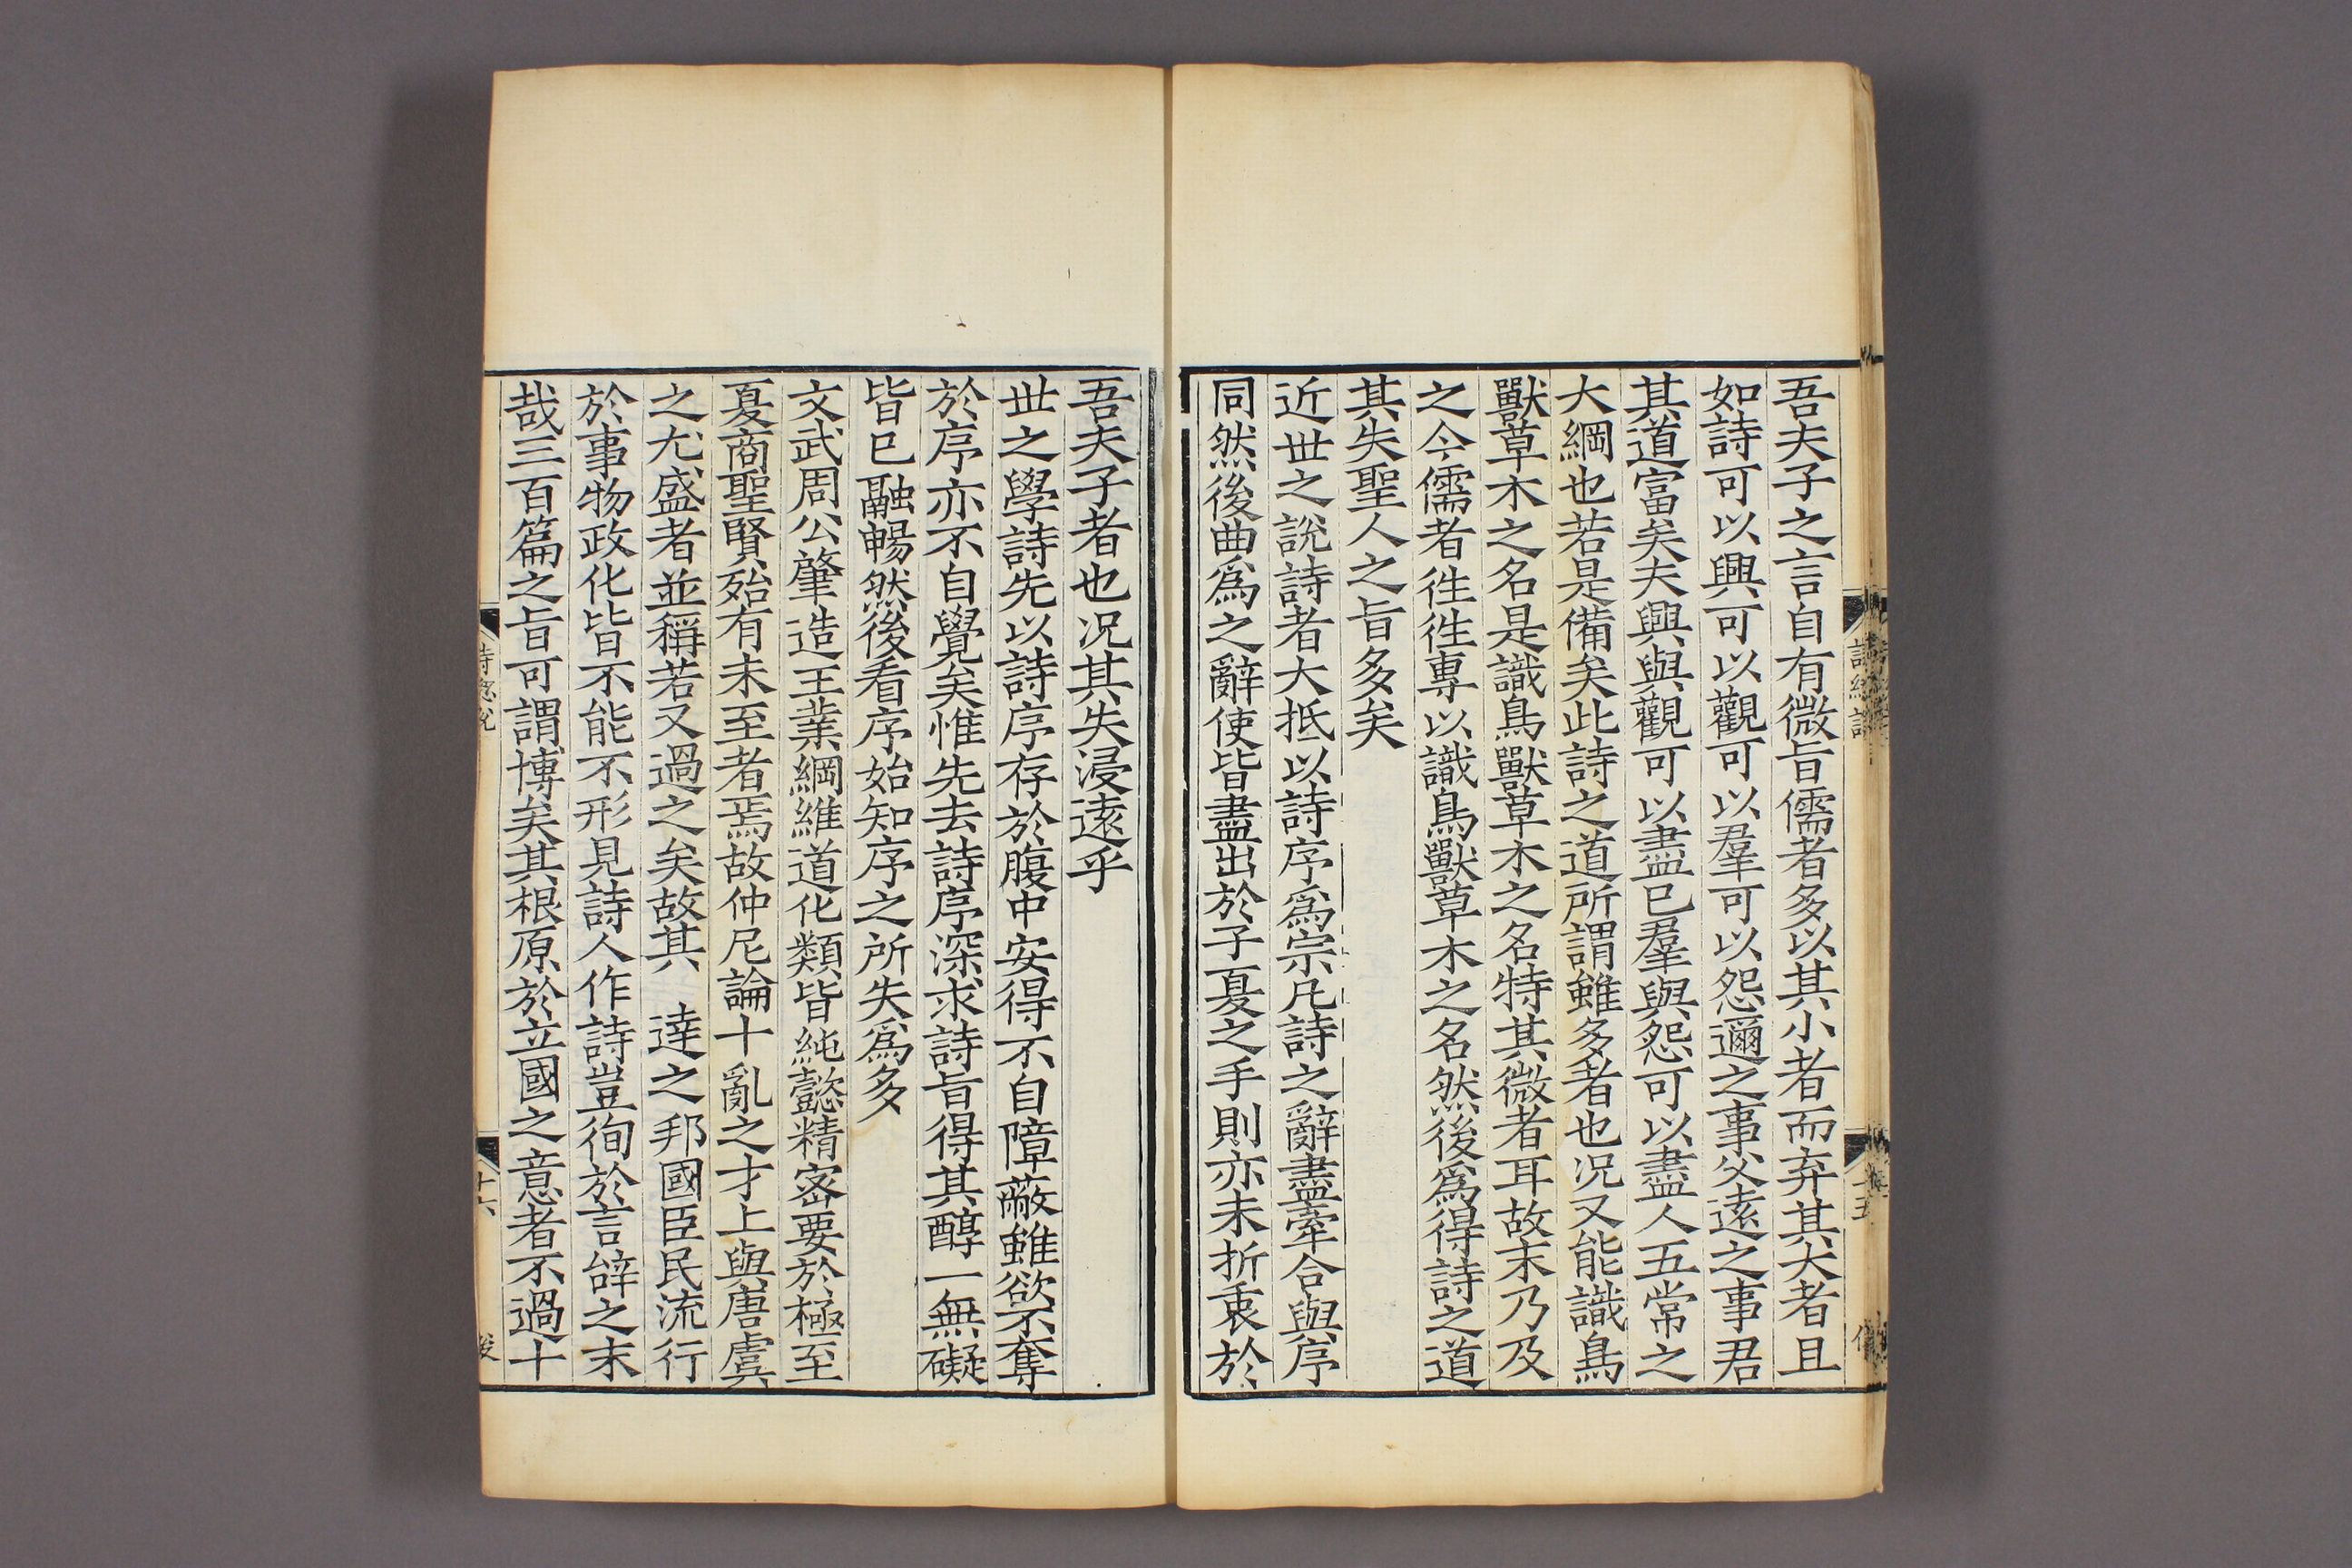 吾夫子之言自有微旨儒者多以其小者而弃其大者且
如詩可以興可以觀可以羣可以怨邇之事父遠之事君
其道富矣夫興與觀可以盡已羣與怨可以盡人五常之
大綱也若是備矣此詩之道所謂雖多者也况又能識鳥
獸草木之名是識鳥獸草木之名特其微者耳故末乃及
之今儒者徃徃專以識鳥獸草木之名然後爲得詩之道
其失聖人之旨多矣
近世之說詩者大抵以詩序爲宗凡詩之辭盡牽合與序
同然後曲爲之辭使皆盡出於子夏之手則亦未折衷於
吾夫子者也况其失浸遠乎
世之學詩先以詩序存於腹中安得不自障蔽雖欲不奪
於序亦不自覺矣惟先去詩序深求詩旨得其醇一無礙
皆已融暢然後看序始知序之所失爲多
文武周公肇造王業綱維道化類皆純懿精密要於極至
夏商聖賢殆有未至者焉故仲尼論十亂之才上與唐虞
之尤盛者並稱若又過之矣故其 達之邦國臣民流行
於事物政化皆不能不形見詩人作詩豈徇於言辞之末
哉三百篇之旨可謂博矣其根原於立國之意者不過十
詩總說
十六